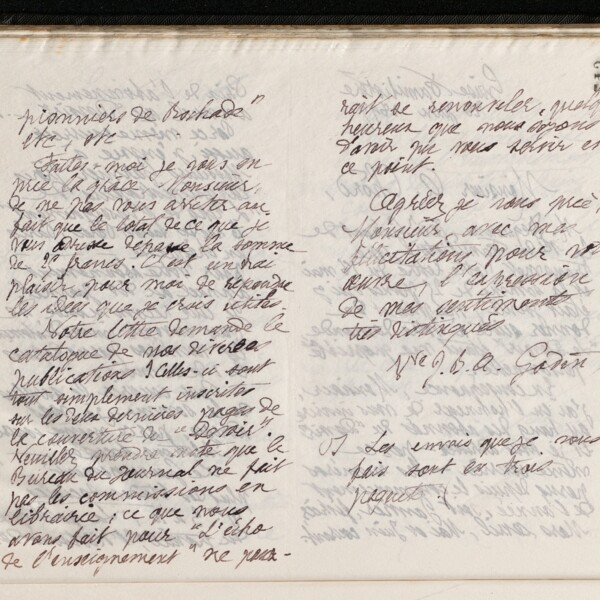 pionniers de Rochdale"
etc, etc
Faites-moi je vous en
prie la grâce Monsieur,
de ne pas vous arrêter au
fait que le total de ce que je
vous adresse dépasse la somme
de 2 francs. C'est un vrai
plaisir pour moi de répandre
les idées que je crois utiles.
Votre lettre demande le
catalogue de nos diverses
publications? Celles-ci sont
tout simplement inscrites
sur les deux dernières pages de
la couverture du "Devoir"
Veuillez prendre note que le
Bureau du Journal ne fait
pas les commissions en
librairie; ce que nous
avons fait pour "L'écho
de l'enseignement" ne pour-
rait se renouveler, quelq
heureux que nous soyons
d'avoir pu vous servir en
ce point.
Agréez je vous prie,
Monsieur, avec mes
félicitations pour vo
œuvre, l'expression
de mes sentiments
très distingués
Vve J. B. A. Godin
Les envois que je vous
fais sont en trois
paquets.